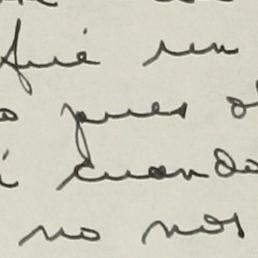 fué un
pues
cuando
no nos